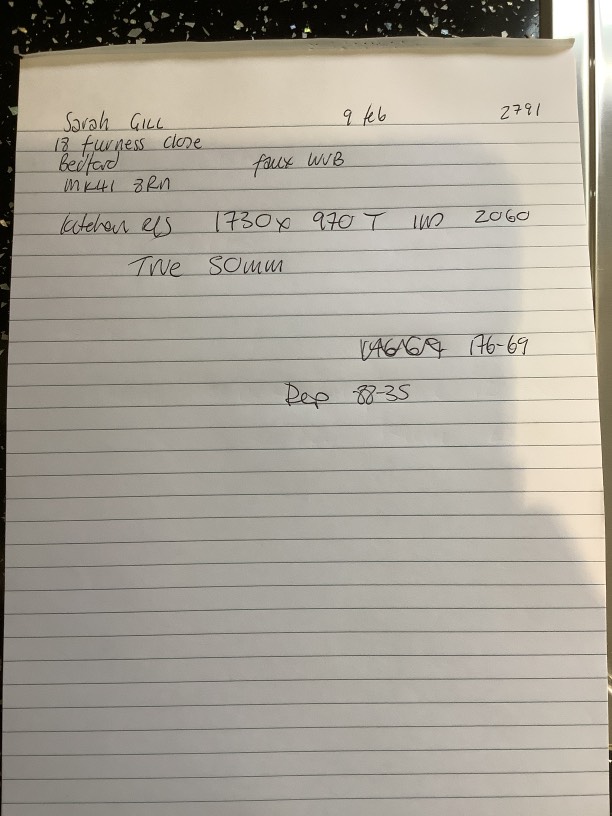 Sarah GILL 9 feb 2791
18 furness close
Bedford faux WVB
MK41 8RN
kitchen 1730 x 970 T 2060
50mm
176-69
Dep 88-35